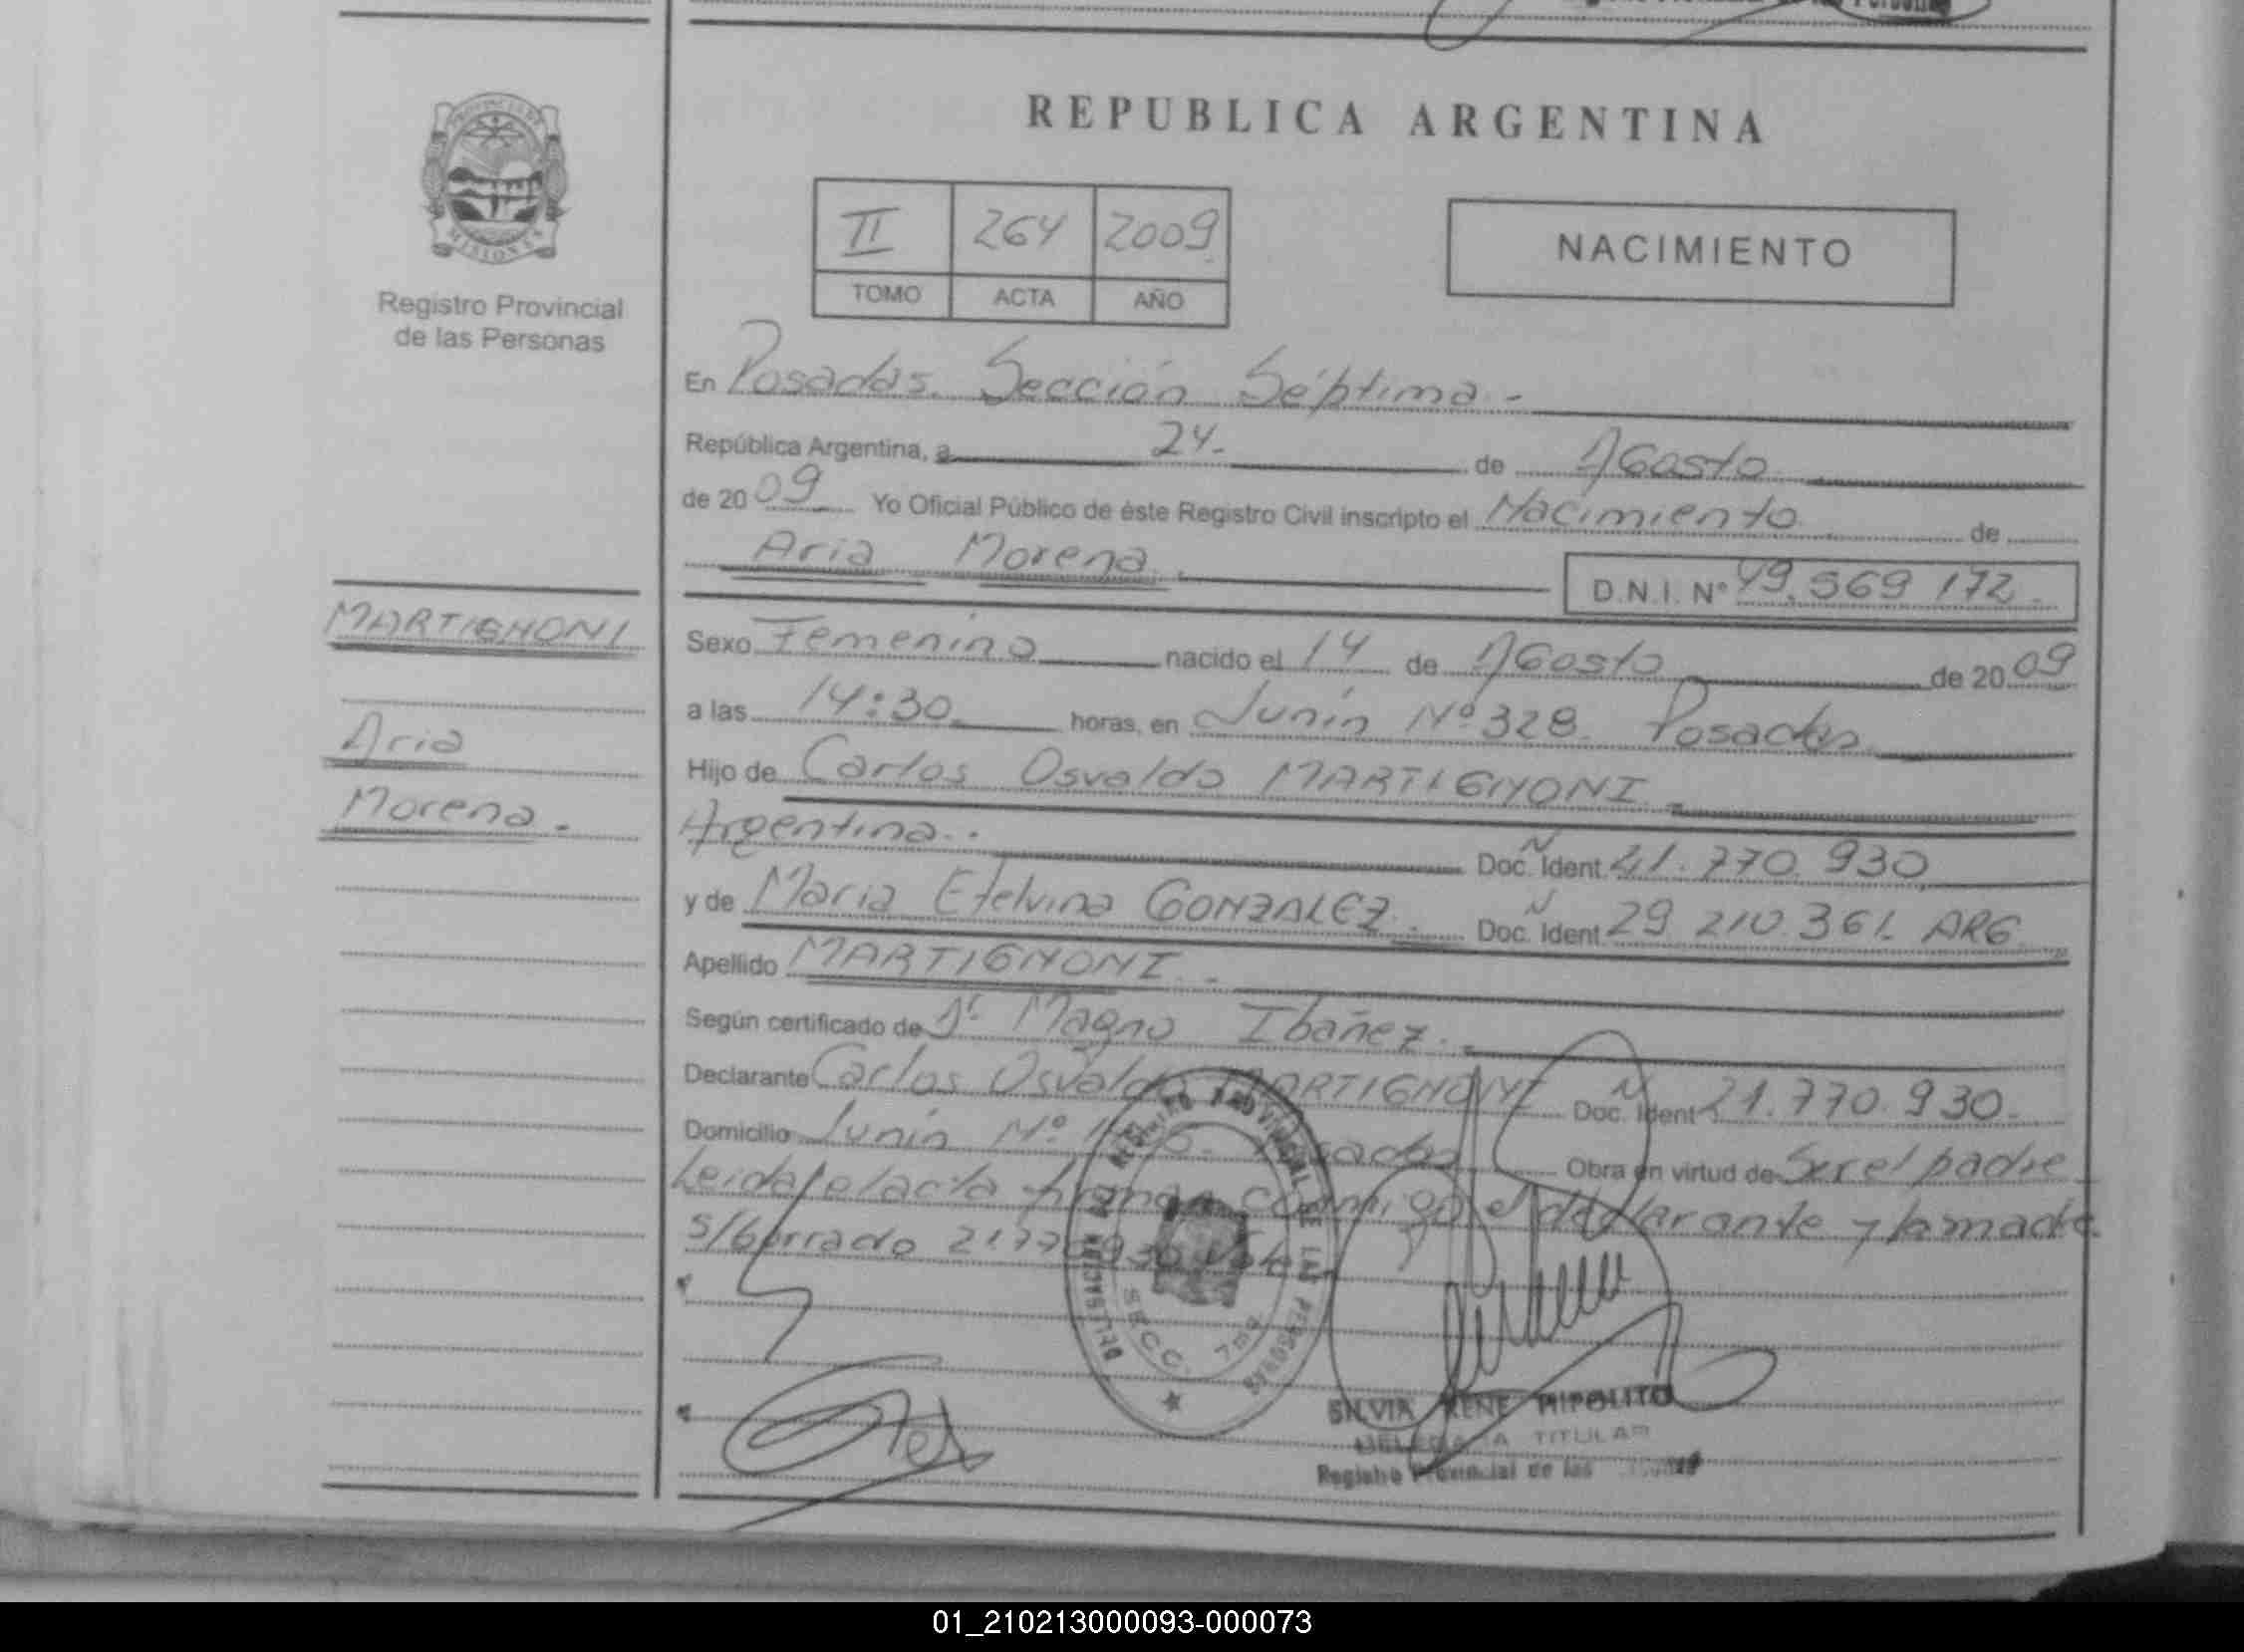 REPUBLICA ARGENTINA
PROVINCIA DE MISIONES
Registro Provincial
de las Personas
II 264 2009
TOMO ACTA AÑO
NACIMIENTO
En Posadas. Sección Séptima.-
República Argentina, a 24.- de Agosto
de 2009 Yo Oficial Público de éste Registro Civil inscripto el Nacimiento de
Aria Morena. D.N.I. Nº 49.569 172.-
MARTIGNONI
Aria
Morena.-
Sexo Femenino nacido el 14 de Agosto de 2009
a las 14:30 horas, en Junín Nº 328. Posadas
Hijo de Carlos Osvaldo MARTIGNONI.-
Argentina.. Doc. Ident. 21.770.930
y de Maria Etelvina GONZALEZ.- Doc. Ident. 29 210.361. ARG.
Apellido MARTIGNONI.-
Según certificado de Dr. Magno Ibañez.-
Declarante Carlos Osvaldo MARTIGNONI Doc. Ident. 21.770.930.-
Domicilio Junín Nº Posadas Obra en virtud de Ser el padre
Leida el acta firman conmigo el declarante y la madre.
S/borrado 21770930 Vale.
DELEGACION REGISTRO PROVINCIAL DE LAS PERSONAS
SECC. 7ma
SILVIA RENE HIPOLITO
DELEGADA TITULAR
Registro Provincial de las
01_210213000093-000073